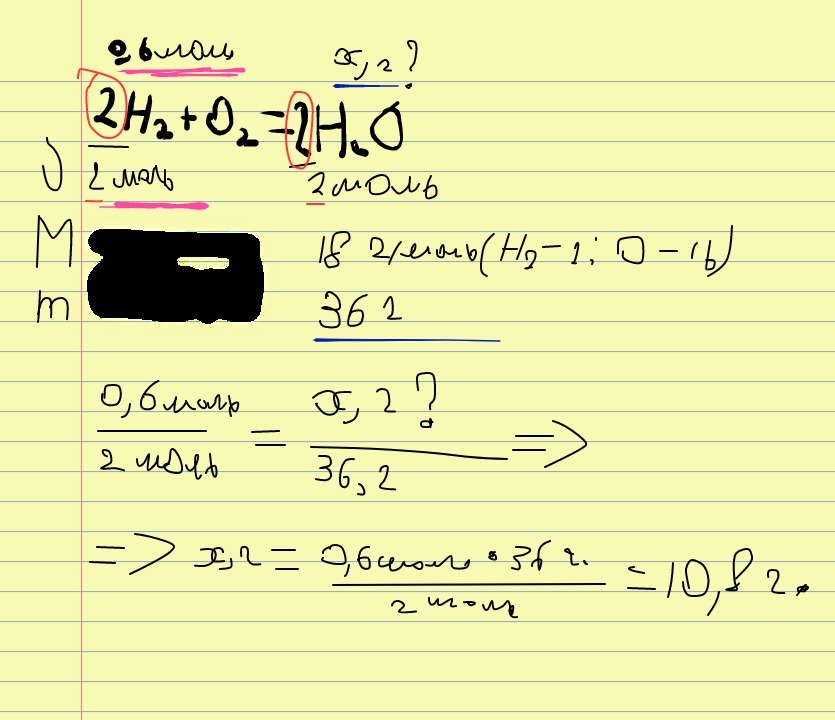 0,6 моль x, г?
2H₂ + O₂ = 2H₂O
ν 2 моль 2 моль
M 18 г/моль (H₂ - 1; O - 16)
m 36 г
0,6 моль / 2 моль = x, г? / 36, г =>
=> x, г = 0,6 моль • 36 г. / 2 моль = 10,8 г.